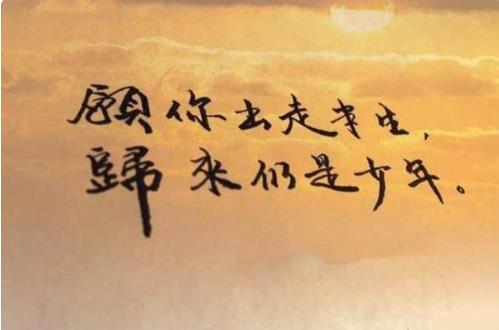 願你出走半生，
歸來仍是少年。